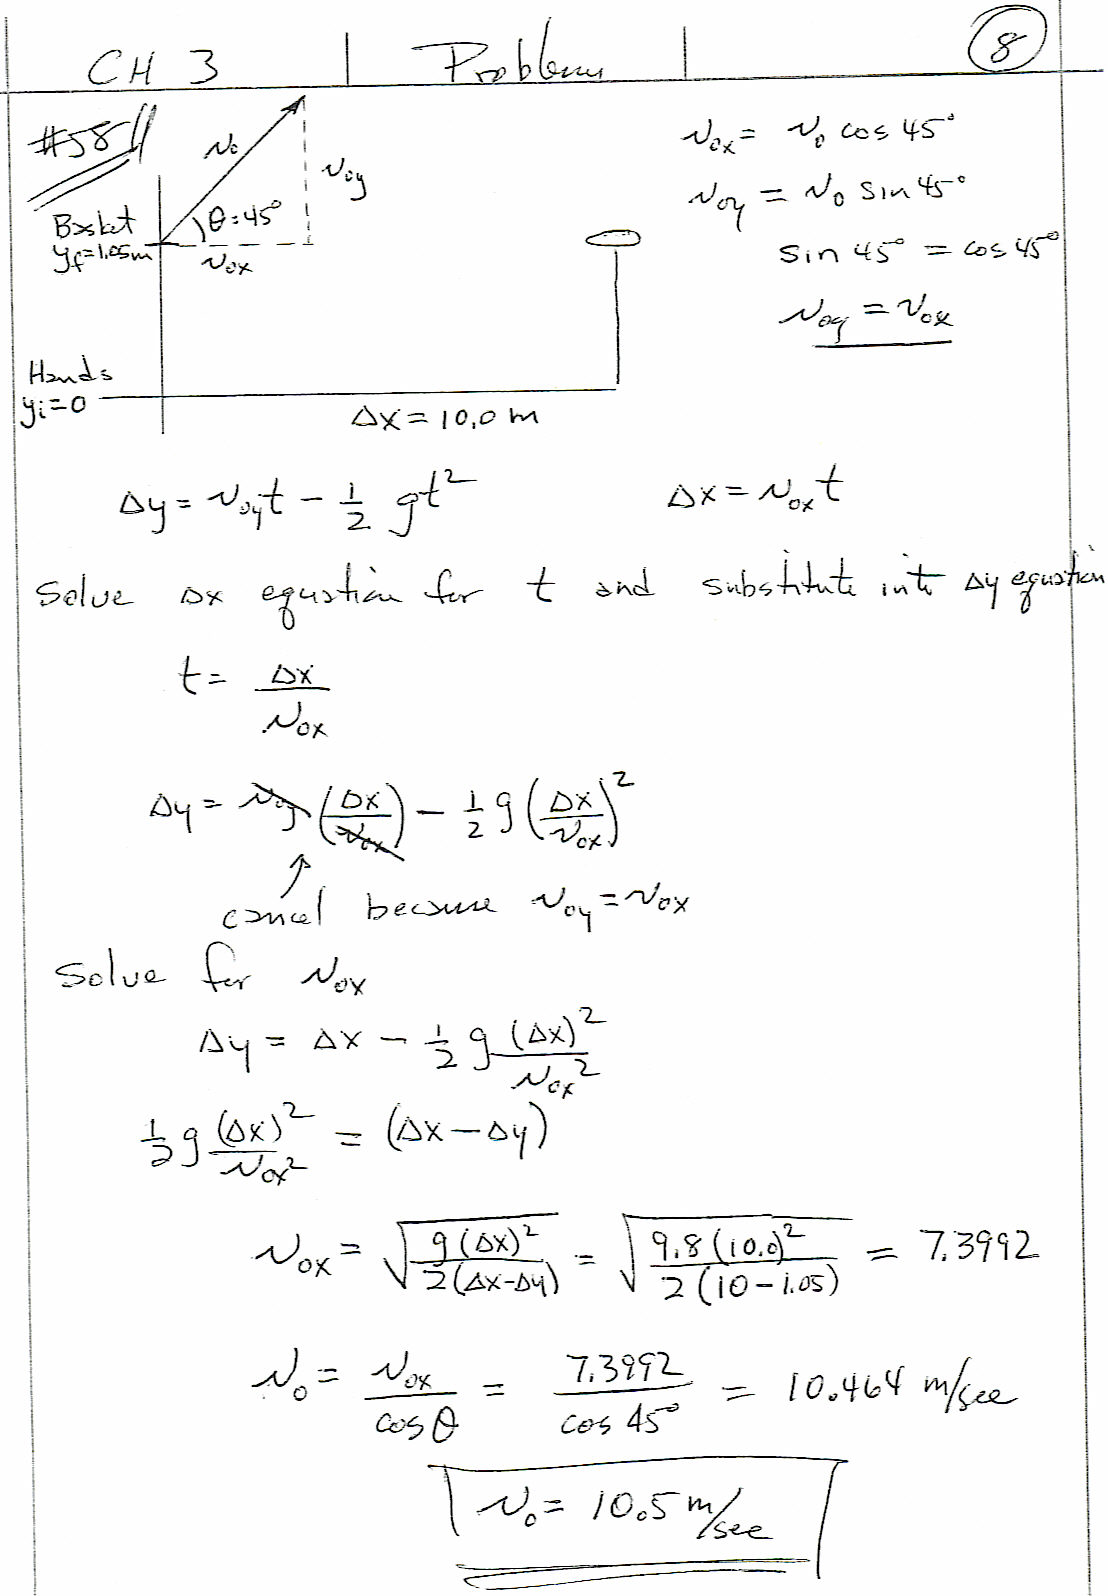 CH 3 | Problems | 8
#58
v₀
v₀y
θ=45°
v₀x
Basket
yf=1.05m
Hands
yi=0
Δx = 10.0 m
v₀x = v₀ cos 45°
v₀y = v₀ sin 45°
sin 45° = cos 45°
v₀y = v₀x
Δy = v₀yt - 1/2 gt²
Δx = v₀xt
Solve Δx equation for t and substitute into Δy equation
t = Δx/v₀x
Δy = v₀y (Δx/v₀x) - 1/2 g (Δx/v₀x)²
cancel because v₀y = v₀x
Solve for v₀x
Δy = Δx - 1/2 g (Δx)²/v₀x²
1/2 g (Δx)²/v₀x² = (Δx - Δy)
v₀x = √(g(Δx)²/2(Δx-Δy)) = √(9.8(10.0)²/2(10-1.05)) = 7.3992
v₀ = v₀x/cos θ = 7.3992/cos 45° = 10.464 m/sec
v₀ = 10.5 m/sec